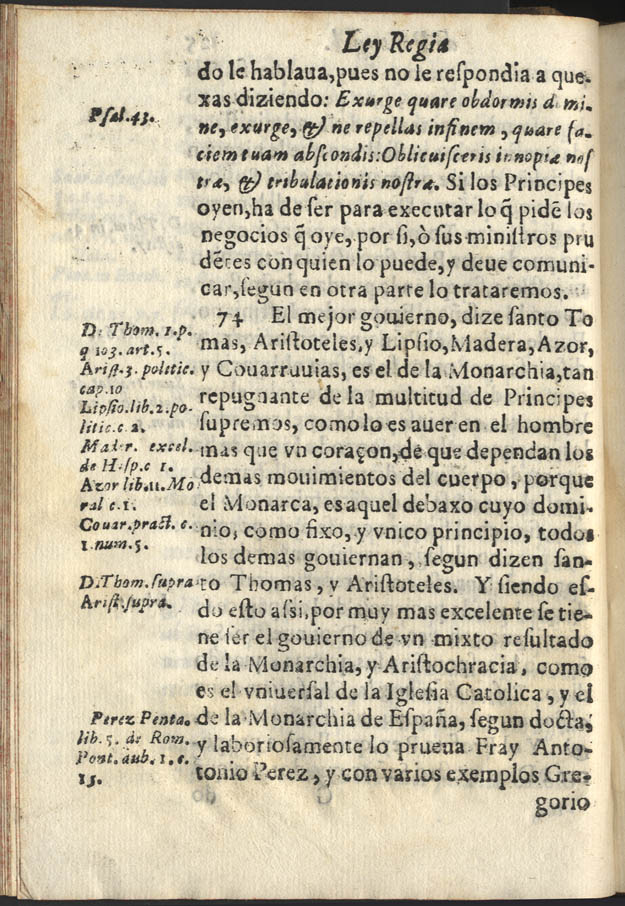 Ley Regia
do le hablaua, pues no le reſpondia a que-
xas diziendo: Exurge quare obdormis domi-
ne, exurge, & ne repellas infinem, quare fa-
ciem tuam abſcondis: Obliuiſceris innopiæ noſ
træ, & tribulationis noſtræ. Si los Principes
oyen, ha de ſer para executar lo q̃ pidẽ los
negocios q̃ oye, por ſi, ò ſus miniſtros pru
dẽtes con quien lo puede, y deue comuni-
car, ſegun en otra parte lo trataremos.
74 El mejor gouierno, dize ſanto To
mas, Ariſtoteles, y Lipſio, Madera, Azor,
y Couarruuias, es el de la Monarchia, tan
repugnante de la multitud de Principes
ſupremos, como lo es auer en el hombre
mas que vn coraçon, de que dependan los
demas mouimientos del cuerpo, porque
el Monarca, es aquel debaxo cuyo domi-
nio, como fixo, y vnico principio, todos
los demas gouiernan, ſegun dizen ſan-
to Thomas, y Ariſtoteles. Y ſiendo eſ-
do eſto aſsi, por muy mas excelente ſe tie-
ne ſer el gouierno de vn mixto reſultado
de la Monarchia, y Ariſtochracia, como
es el vniuerſal de la Igleſia Catolica, y el
de la Monarchia de Eſpaña, ſegun docta,
y laborioſamente lo prueua Fray Anto-
tonio Perez, y con varios exemplos Gre-
gorio
Pſal. 43.
D. Thom. 1. p.
q 103. art. 5.
Ariſt. 3. politic.
cap. 10
Lipſio. lib. 2. po-
litic. c. 2.
Mader. excel.
de Hiſp. c 1.
Azor lib. 11. Mo
ral c. 1.
Couar. pract. c.
1. num. 5.
D. Thom. ſupra
Ariſt. ſupra.
Perez Penta.
lib. 5. de Rom.
Pont. dub. 1. c.
15.